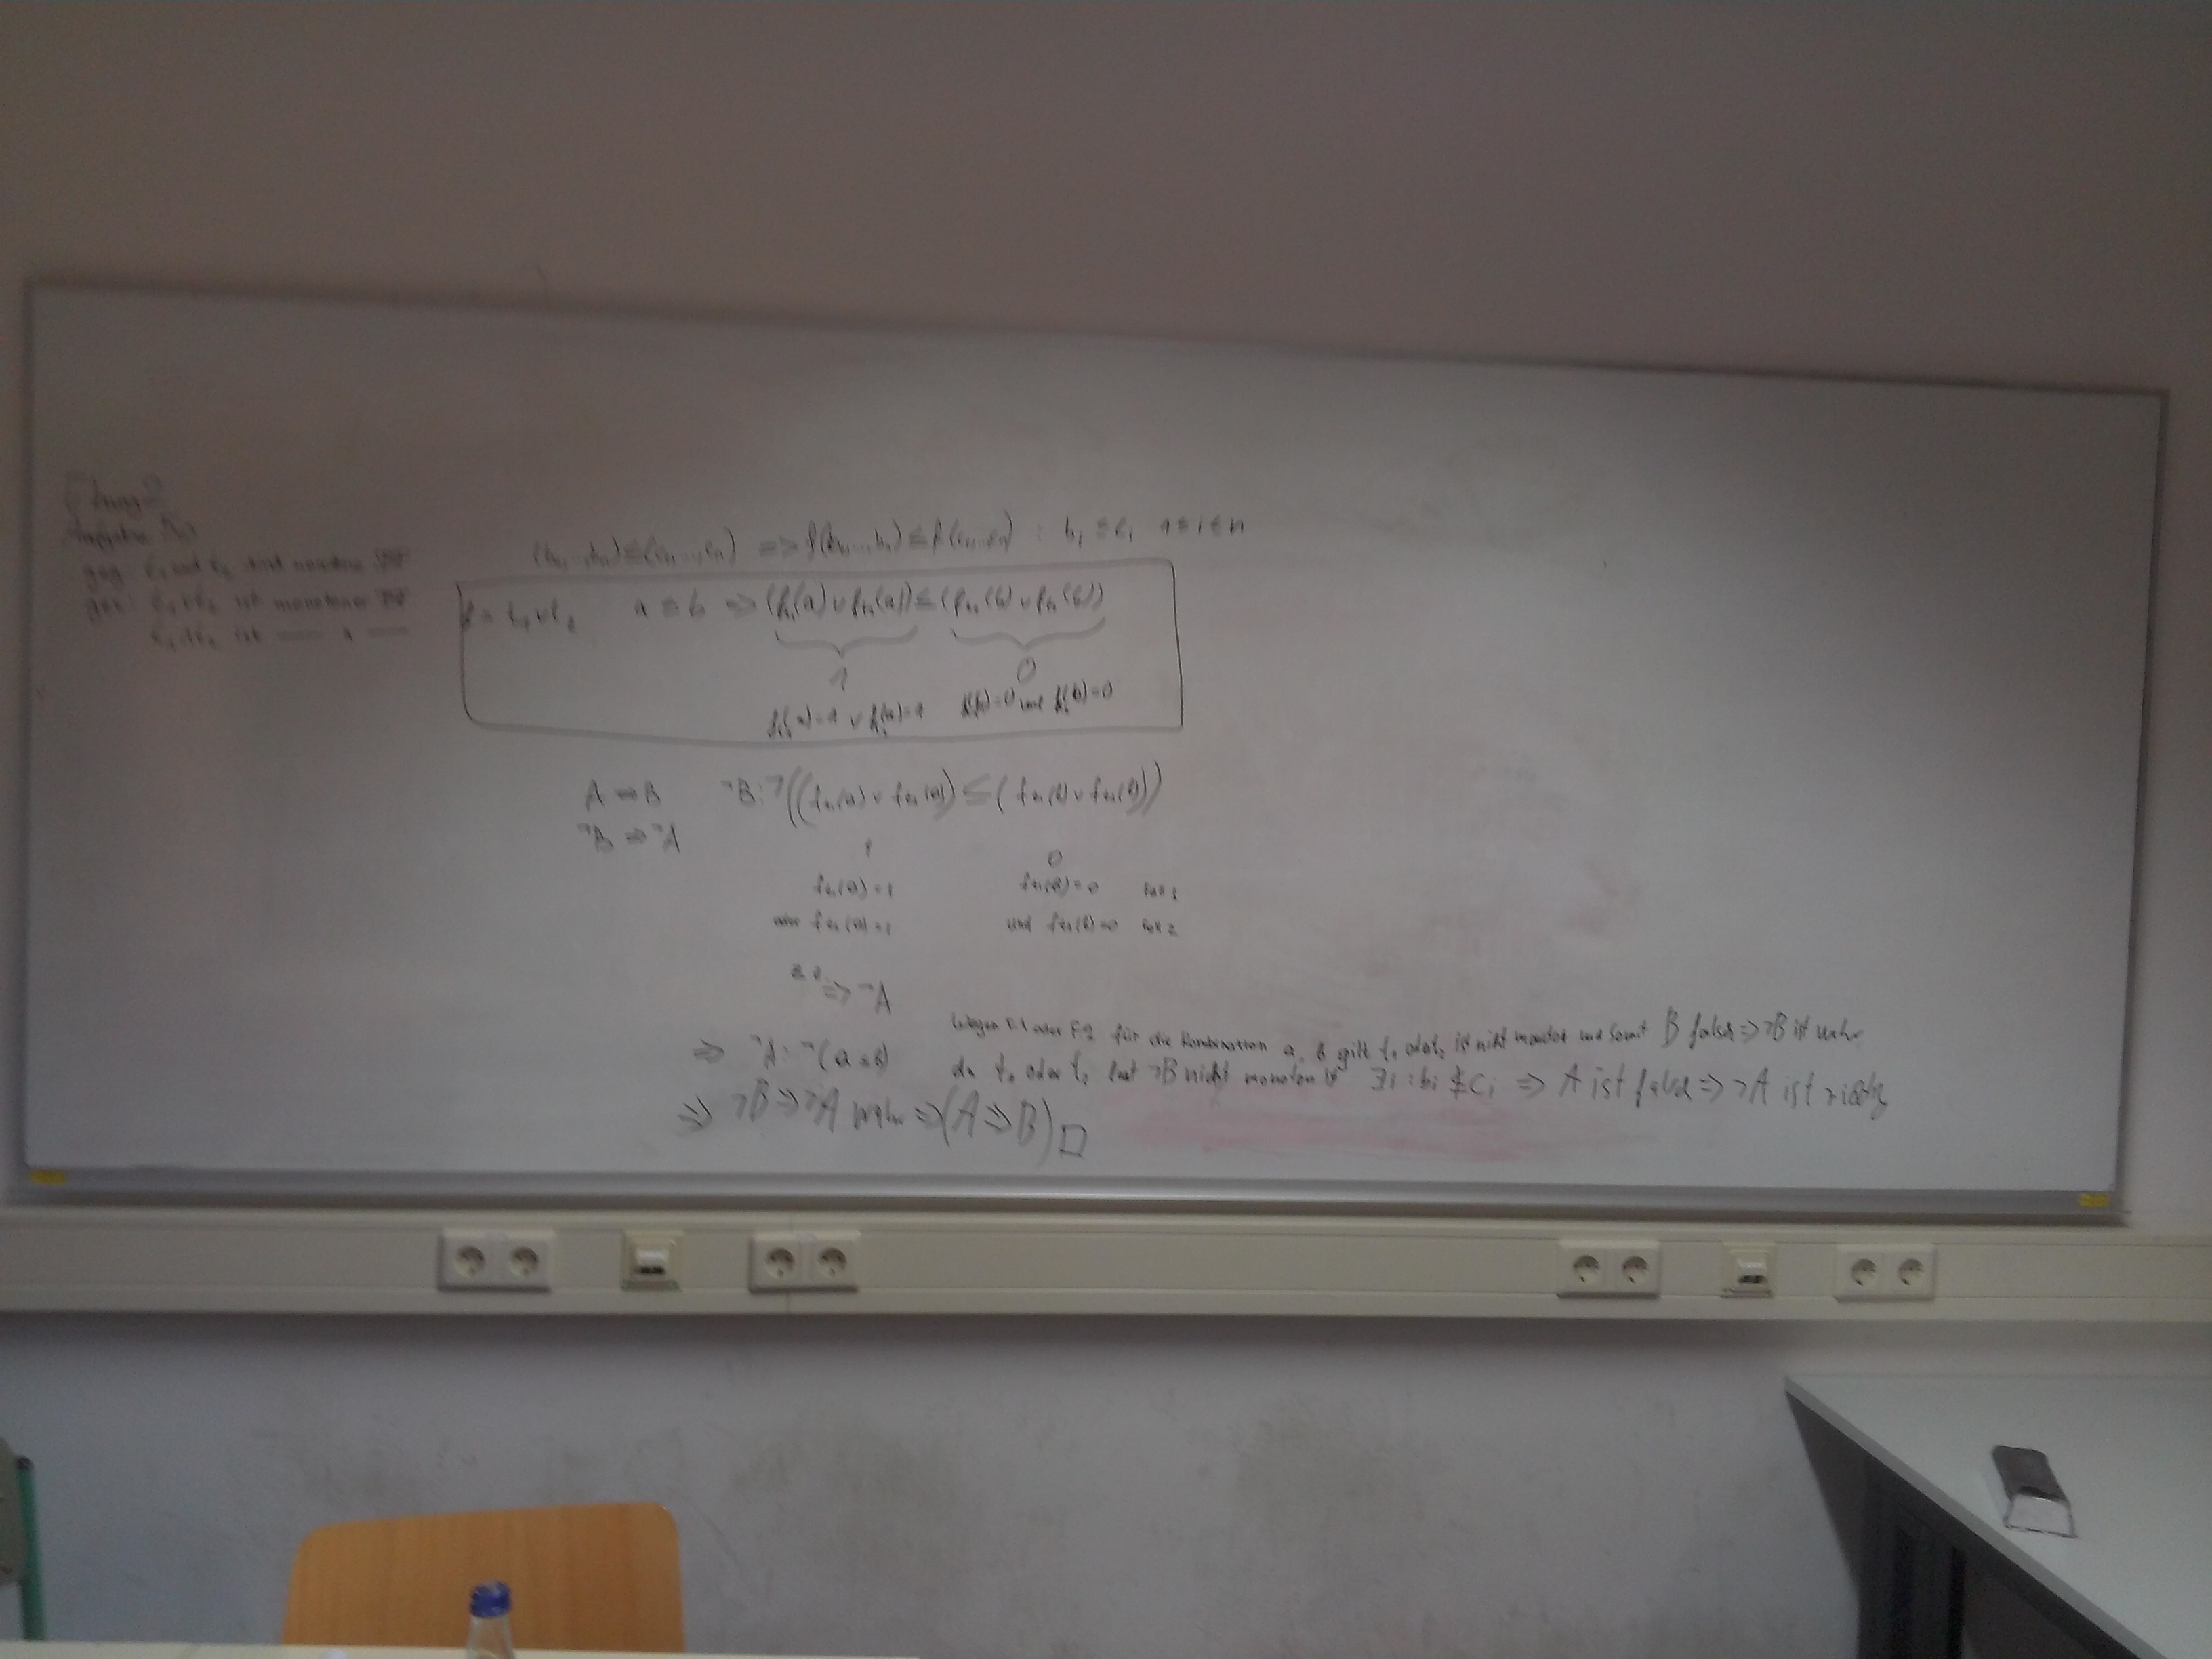 Übung 2
Aufgabe
geg: t₁ und t₂ sind monotone
gen: t₁∨t₂ ist monotoner
t₁∧t₂ ist — " —
(b₁,...,bₙ)≤(c₁,...,cₙ) => f(b₁,...,bₙ)≤f(c₁...cₙ) : bᵢ ≤ cᵢ 1≤i≤n
f = t₁∨t₂ a ≤ b => (fₜ₁(a)∨fₜ₂(a))≤(fₜ₁(b)∨fₜ₂(b))
1 0
fₜ₁(a)=1 ∨ fₜ₂(a)=1 fₜ₁(b)=0 und fₜ₂(b)=0
A => B ¬B: ¬((fₜ₁(a)∨fₜ₂(a))≤(fₜ₁(b)∨fₜ₂(b)))
¬B => ¬A
1 0
fₜ₁(a)=1 fₜ₁(b)=0 Fall 1
oder fₜ₂(a)=1 und fₜ₂(b)=0 Fall 2
z.z. => ¬A
Wegen F.1 oder F.2 für die Kombination a, b gilt t₁ oder t₂ ist nicht monoton und somit B falsch => ¬B ist wahr
=> ¬A: ¬(a≤b)
da t₁ oder t₂ laut ¬B nicht monoton ist ∃i : bᵢ ≰ cᵢ => A ist falsch => ¬A ist richtig
=> ¬B => ¬A wahr => (A => B) □